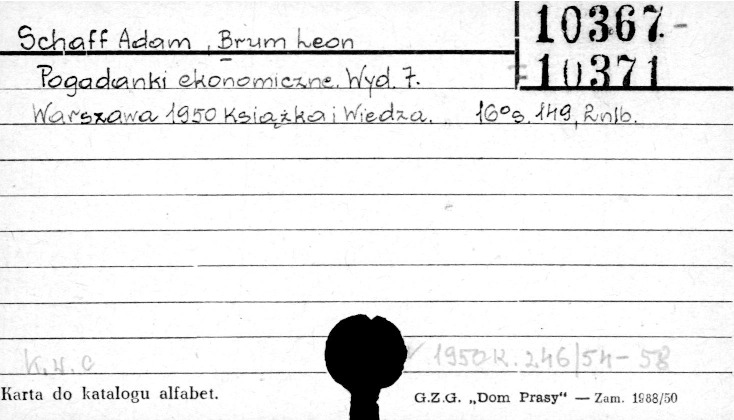 Schaff Adam, Brum Leon
10367-
-10371
Pogadanki ekonomiczne. Wyd. 7.
Warszawa 1950 Książka i Wiedza. 16° s. 149, 2 nlb.
K.W.C
√ 1950 K. 246/54-58
Karta do katalogu alfabet.
G.Z.G. „Dom Prasy" — Zam. 1988/50